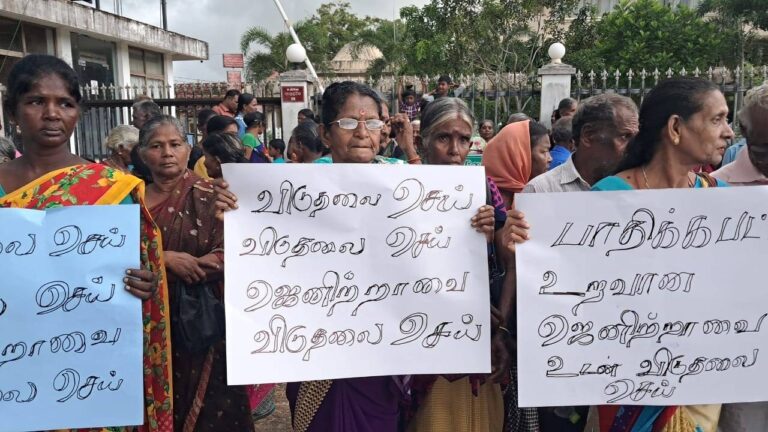 லை செய்
செய்
றாவை
செய்
விடுதலை செய்
விடுதலை செய்
ஜெனிற்றாவை
விடுதலை செய்
பாதிக்கபட்
உறவான
ஜெனிற்றாவை
உடன் விடுதலை
செய்